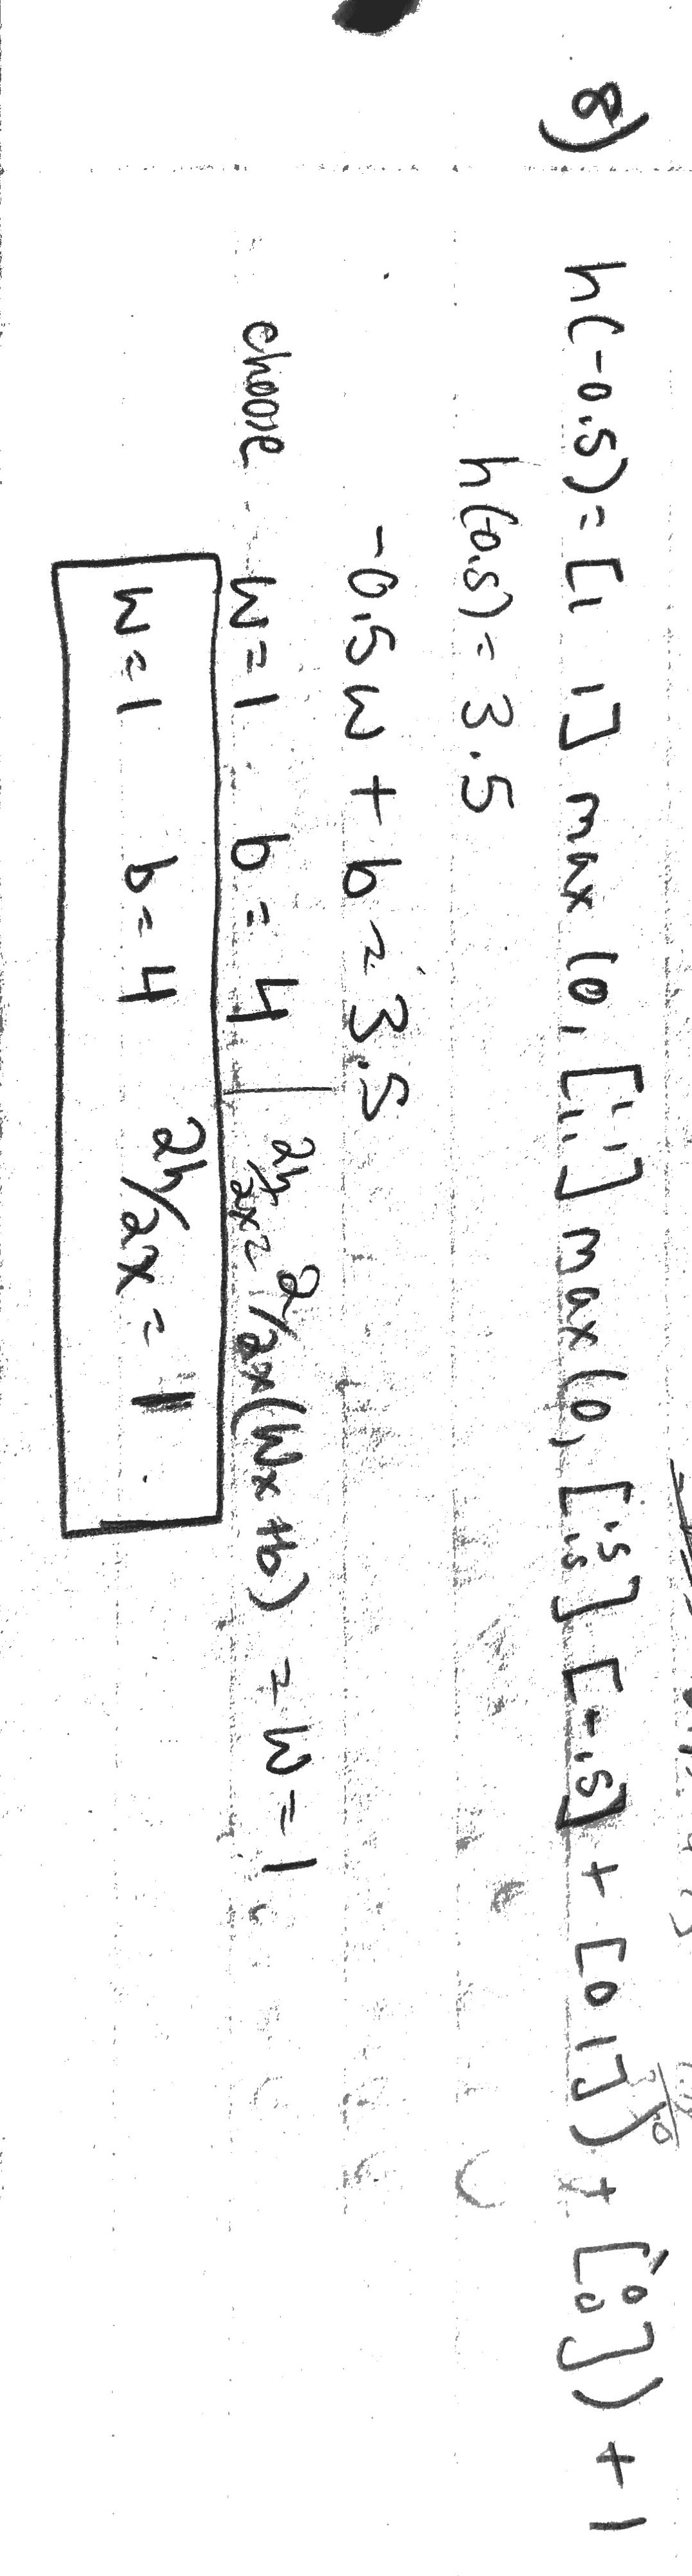 8) h(-0.5) = [1 1] max(0, [1 1 1 1] max(0, [.5 .5] [-.5] + [0 1]) + [0 0]) + 1
h(0.5) = 3.5
-0.5w + b = 3.5
choose w=1 b=4 | ∂h/∂x = ∂/∂x(Wx+b) = W = 1
w=1 b=4 ∂h/∂x = 1